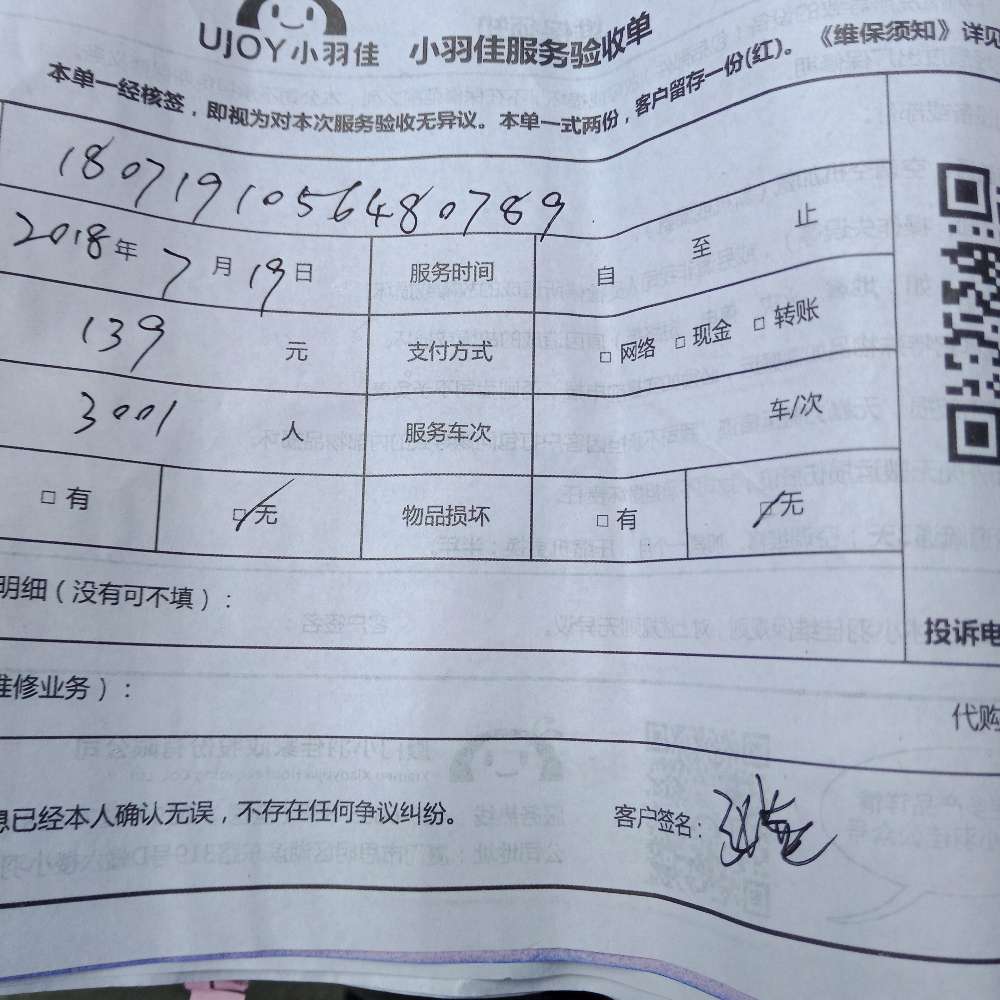 UJOY小羽佳 小羽佳服务验收单
本单一经核签，即视为对本次服务验收无异议。本单一式两份，客户留存一份(红)。《维保须知》详见
1807191056480789
2018年7月19日 服务时间 自 至 止
139 元 支付方式 □网络 □现金 □转账
3001 人 服务车次 车/次
□有 □无 物品损坏 □有 □无
明细（没有可不填）：
投诉电
维修业务）：
代购
息已经本人确认无误，不存在任何争议纠纷。 客户签名：